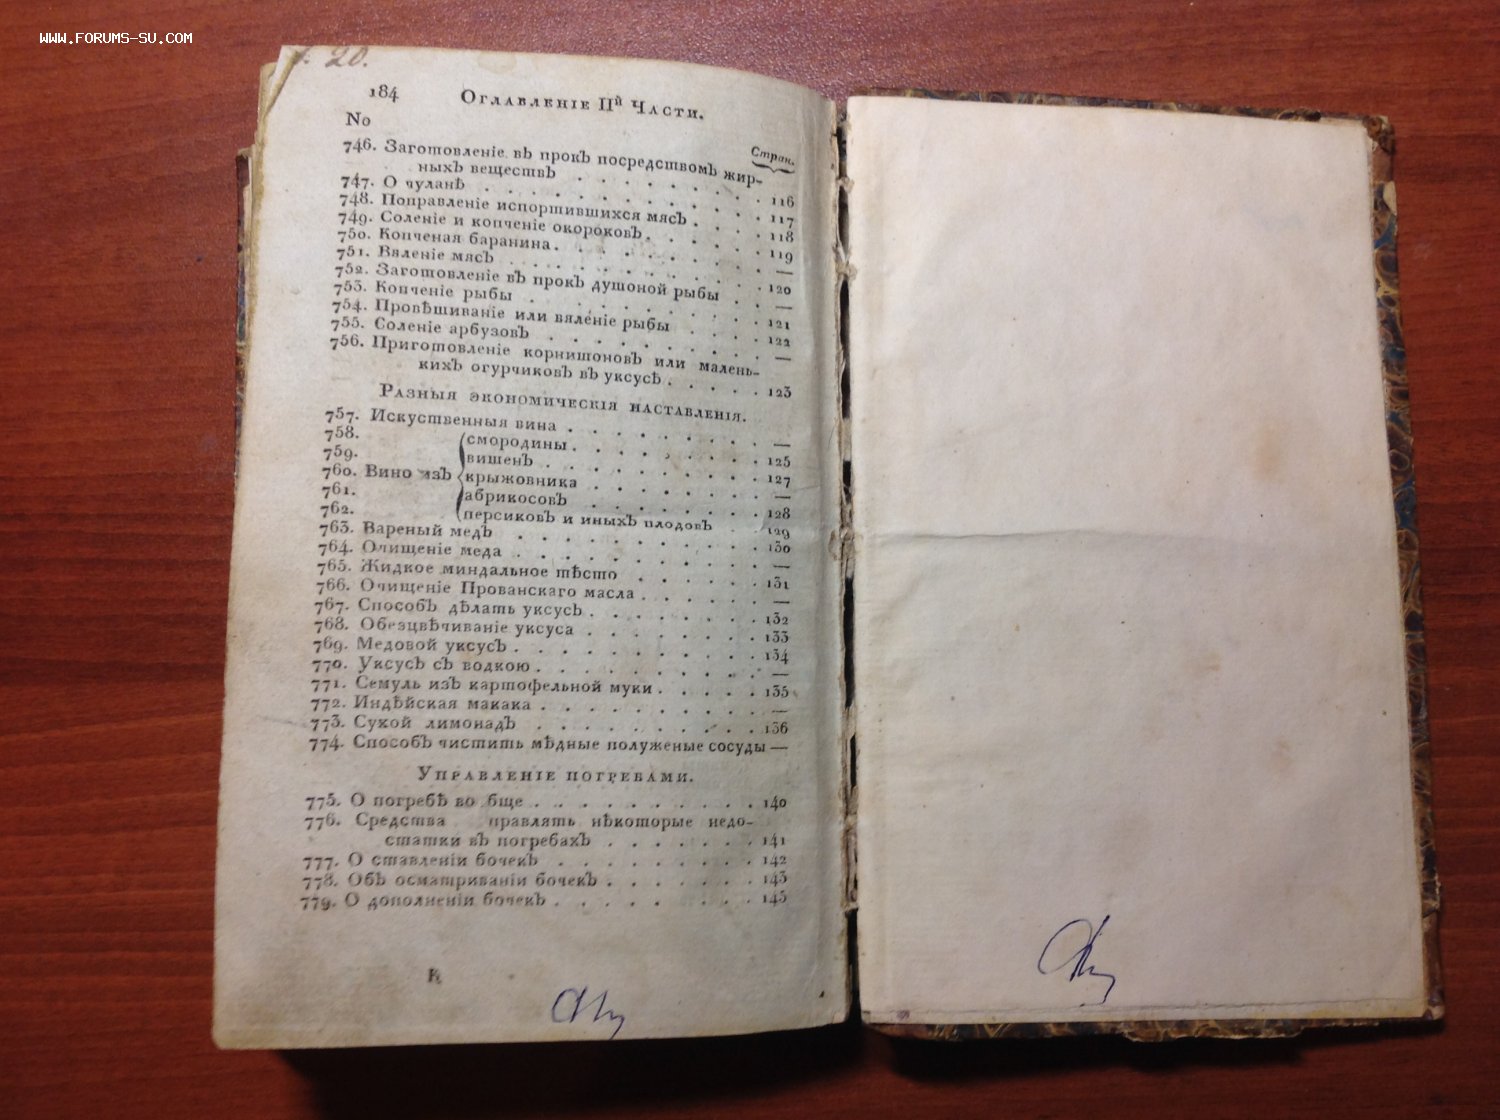 www.forums-su.com
20.
184 Оглавленіе IIй Части.
No
Стран.
746. Заготовленіе въ прокъ посредствомъ жир-
ныхъ веществъ . . . . . . . . 116
747. О чуланѣ . . . . . . . . . . 117
748. Поправленіе испортившихся мясъ . . . . 118
749. Соленіе и копченіе окороковъ . . . . . 119
750. Копченая баранина . . . . . . . . —
751. Вяленіе мясъ . . . . . . . . . 120
752. Заготовленіе въ прокъ душоной рыбы . . —
753. Копченіе рыбы . . . . . . . . . 121
754. Провѣшиваніе или вяленіе рыбы . . . . 122
755. Соленіе арбузовъ . . . . . . . . —
756. Приготовленіе корнишоновъ или малень-
кихъ огурчиковъ въ уксусѣ . . . . 123
Разныя экономическія наставленія.
757. Искуственныя вина . . . . . . . . —
758. смородины . . . . . . . . 125
759. вишенъ . . . . . . . . . 127
760. Вино изъ крыжовника . . . . . . . —
761. абрикосовъ . . . . . . . 128
762. персиковъ и иныхъ плодовъ . . 129
763. Вареный медъ . . . . . . . . . 130
764. Очищеніе меда . . . . . . . . . —
765. Жидкое миндальное тѣсто . . . . . . 131
766. Очищеніе Прованскаго масла . . . . . . —
767. Способъ дѣлать уксусъ . . . . . . . 132
768. Обезцвѣчиваніе уксуса . . . . . . . 133
769. Медовой уксусъ . . . . . . . . . 134
770. Уксусъ съ водкою . . . . . . . . . —
771. Семуль изъ картофельной муки . . . . . 135
772. Индѣйская макака . . . . . . . . . —
773. Сухой лимонадъ . . . . . . . . . 136
774. Способъ чистить мѣдные полуженые сосуды —
Управленіе погребами.
775. О погребѣ во бще . . . . . . . . . 140
776. Средства правлять нѣкоторые недо-
статки въ погребахъ . . . . . . 141
777. О ставленіи бочекъ . . . . . . . . 142
778. Объ осматриваніи бочекъ . . . . . . 143
779. О дополненіи бочекъ . . . . . . . . 145